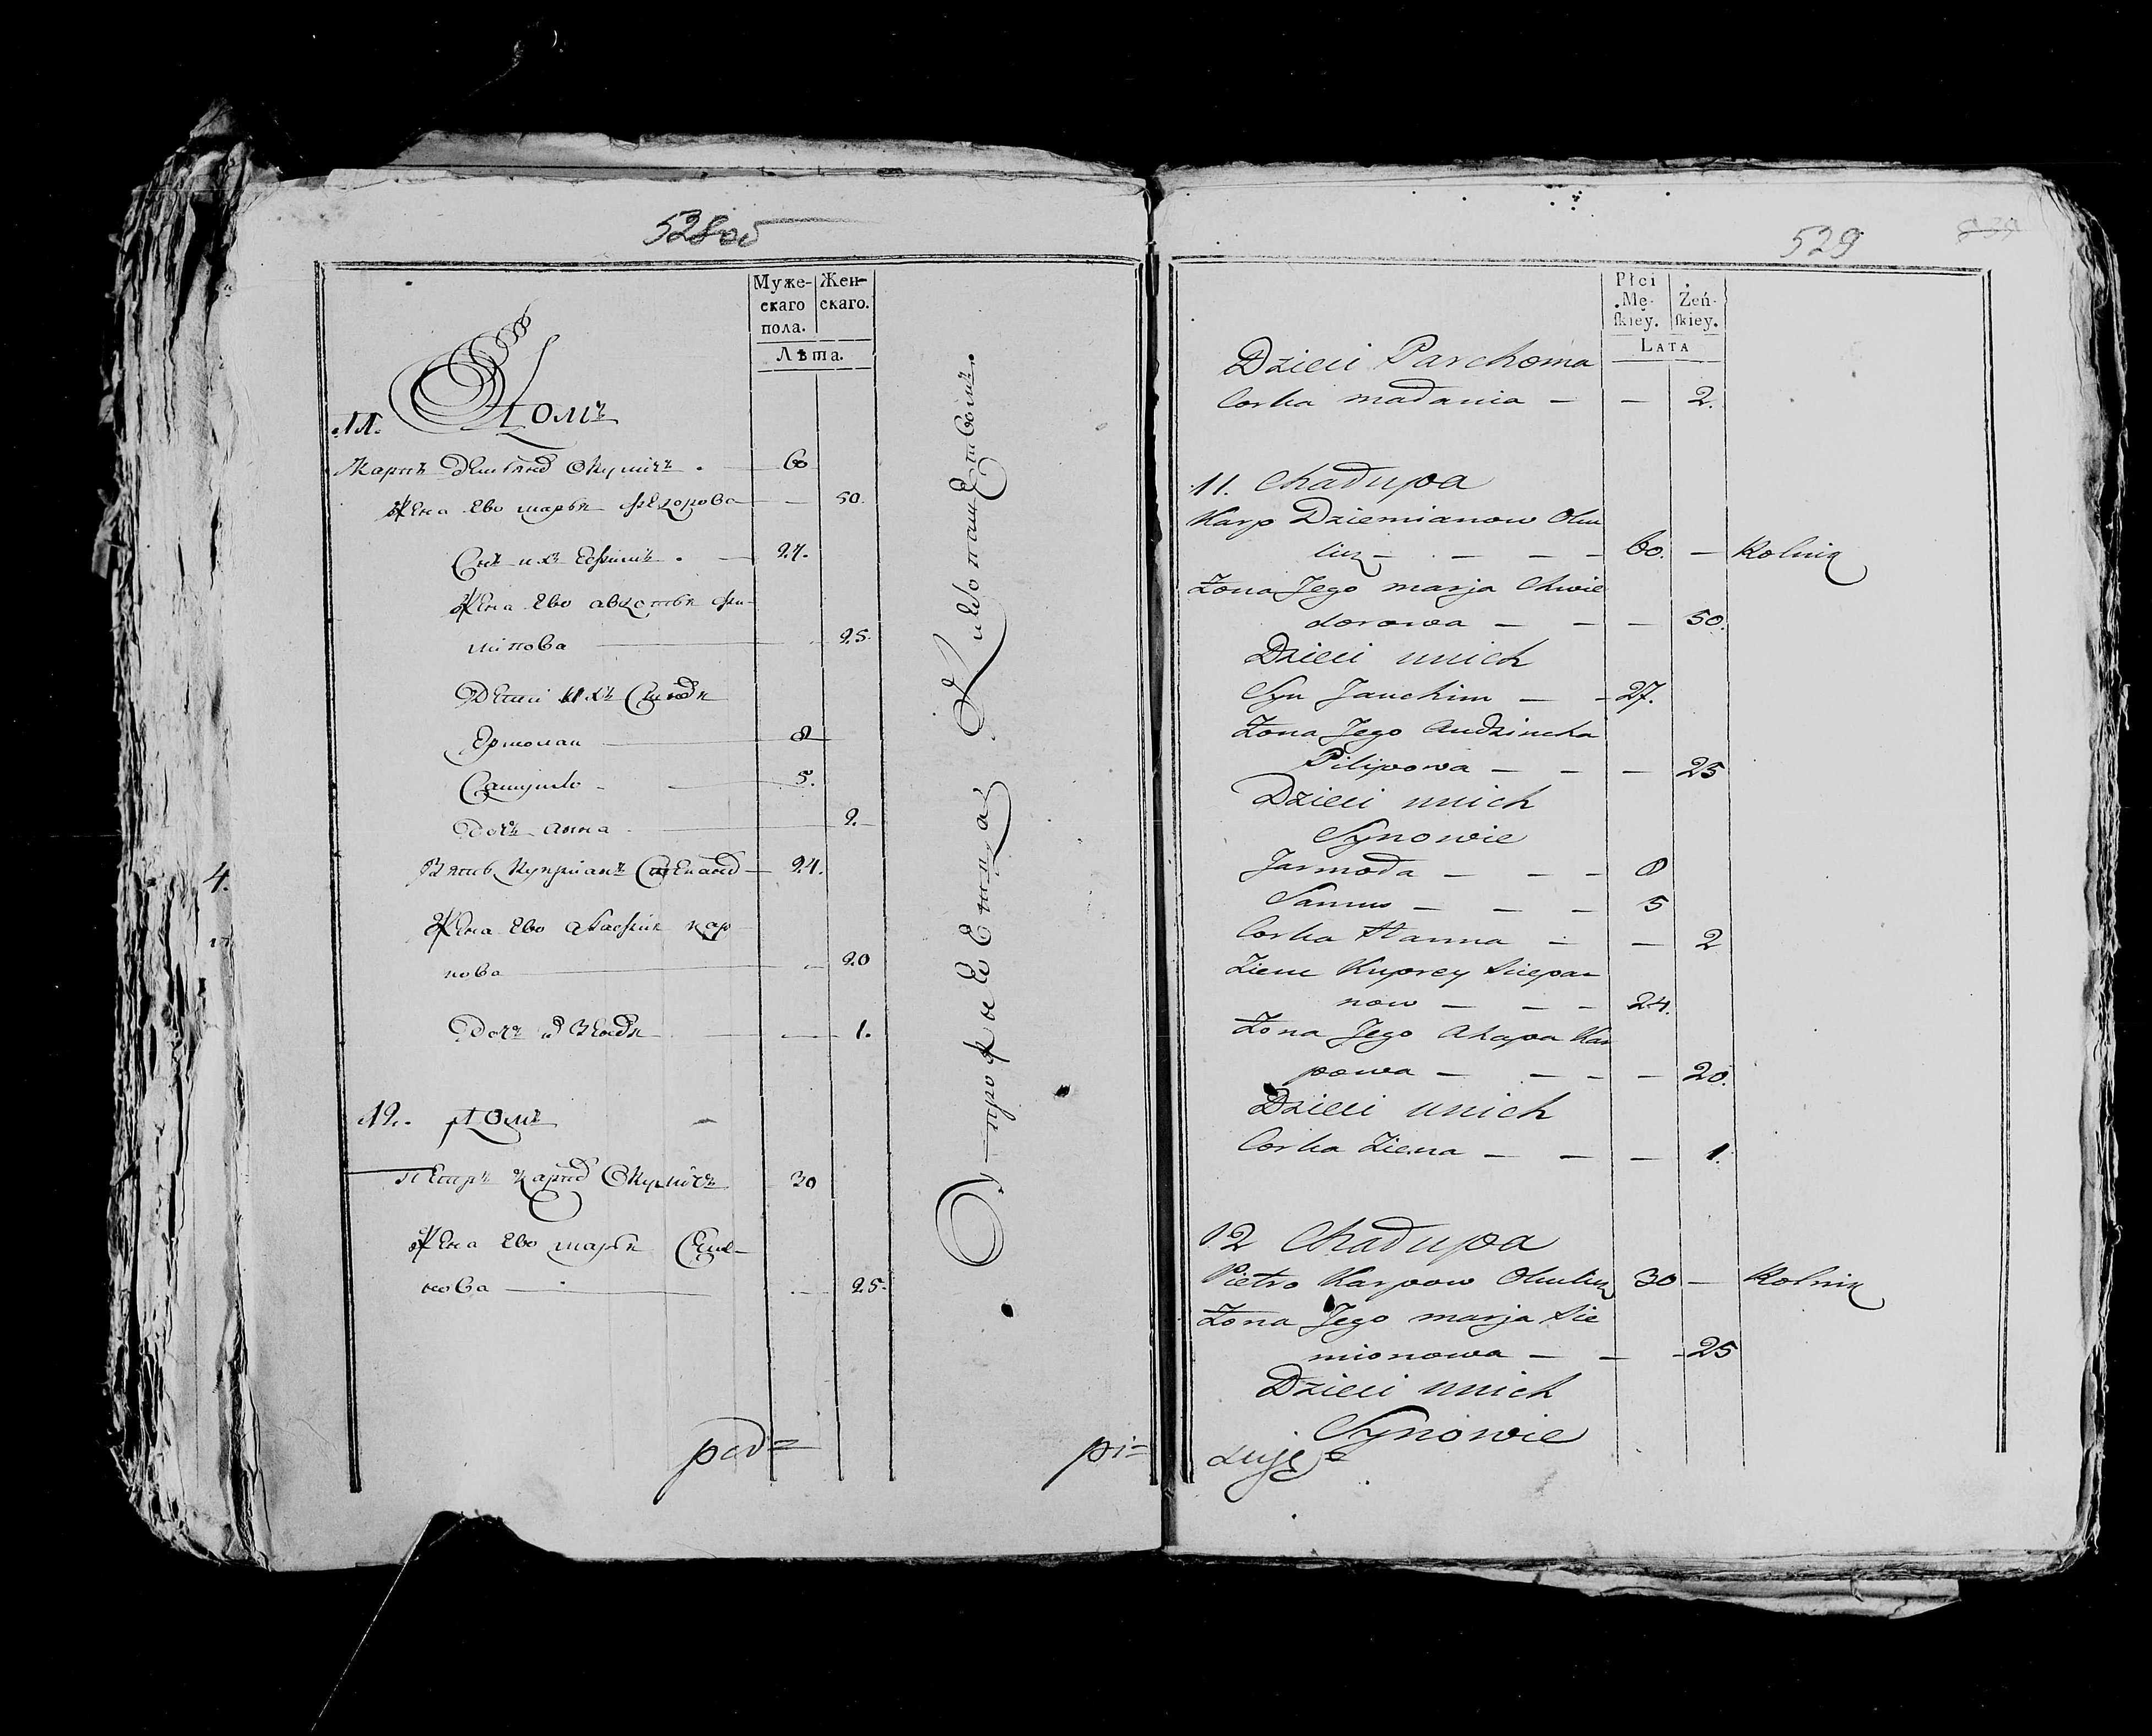 528об
Муже-
скаго
пола.
Жен-
скаго.
Лѣта.
11. Домъ
Карпъ Демьяно 60
Жена ево марья Федорова 50.
Снъ ихъ 27.
Жена ево авдотья Фи-
липова 25.
Дети ихъ
Ермолаи 8
Самуило 5.
Дочь анна 2.
Зять Куприанъ Степано 24.
Жена ево Кар
пова 20
Дочь 1.
12. Домъ
Петръ Карпо 30
Жена ево марья Семе-
нова 25.
Хлѣбопашествомъ.
pod=
pi=
529
Płci
Mę-
ſkiey.
Żeń-
ſkiey.
LATA
Dzieci Parchoma
Corka madania — — 2.
11. Chadupa
Karp Dziemianow
60. — Rolnik
Żona Jego marja Chwie
dorowa — — — 50.
Dzieci unich
Syn Jauchim — — 27.
Żona Jego Audzincha
Pilipowa — — — 25
Dzieci unich
Synowie
Jarmoła — — — 8
Samus — — — 5
Corka Hanna — — 2
Ziene Kuprey Sciepa
now — — — 24.
Żona Jego Ahapa Kar
powa — — — — 20.
Dzieci unich
Corka Ziena — — — 1.
12 Chadupa
Pietro Karpow 30 — Rolnik
Żona Jego marja Sie
mionowa — — — 25
Dzieci unich
Synowie
suję=